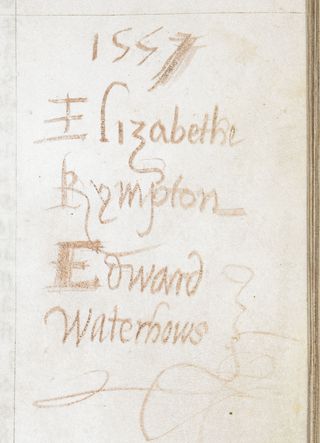 1557
Elizabethe
Kympton
Edward
Waterhows